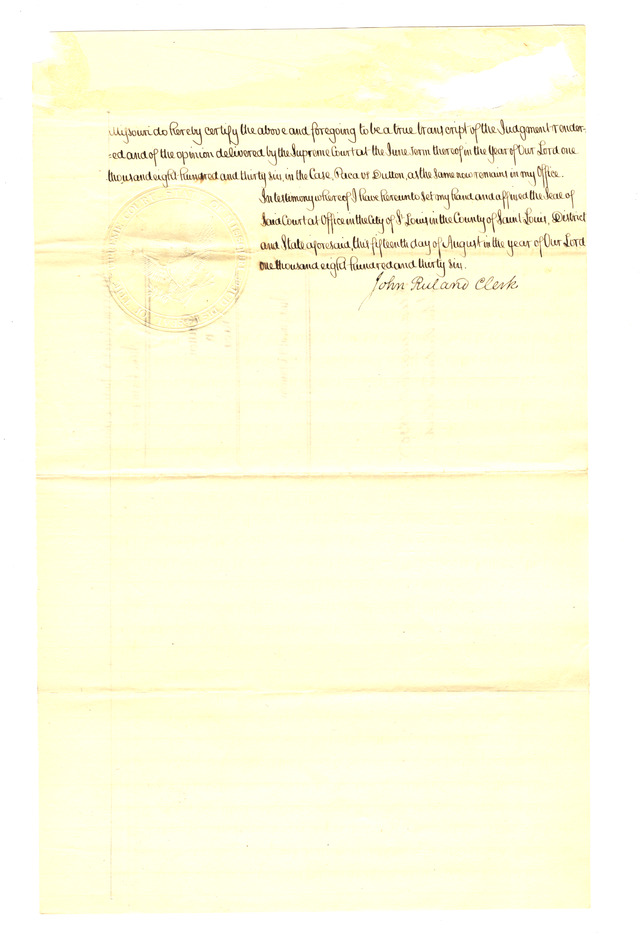 Missouri do hereby certify the above and foregoing to be a true transcript of the Judgment render-
=ed and of the opinion delivered by the Supreme Court at the June Term thereof in the Year of Our Lord one
thousand eight hundred and thirty six, in the Case, Paca vs Dutton, as the same now remain in my Office.
In testimony whereof I have hereunto set my hand and affixed the seal of
Said Court at Office in the City of St Louis in the County of Saint Louis, District
and State aforesaid, this fifteenth day of August in the year of Our Lord
one thousand eight hundred and thirty six.
John Ruland Clerk